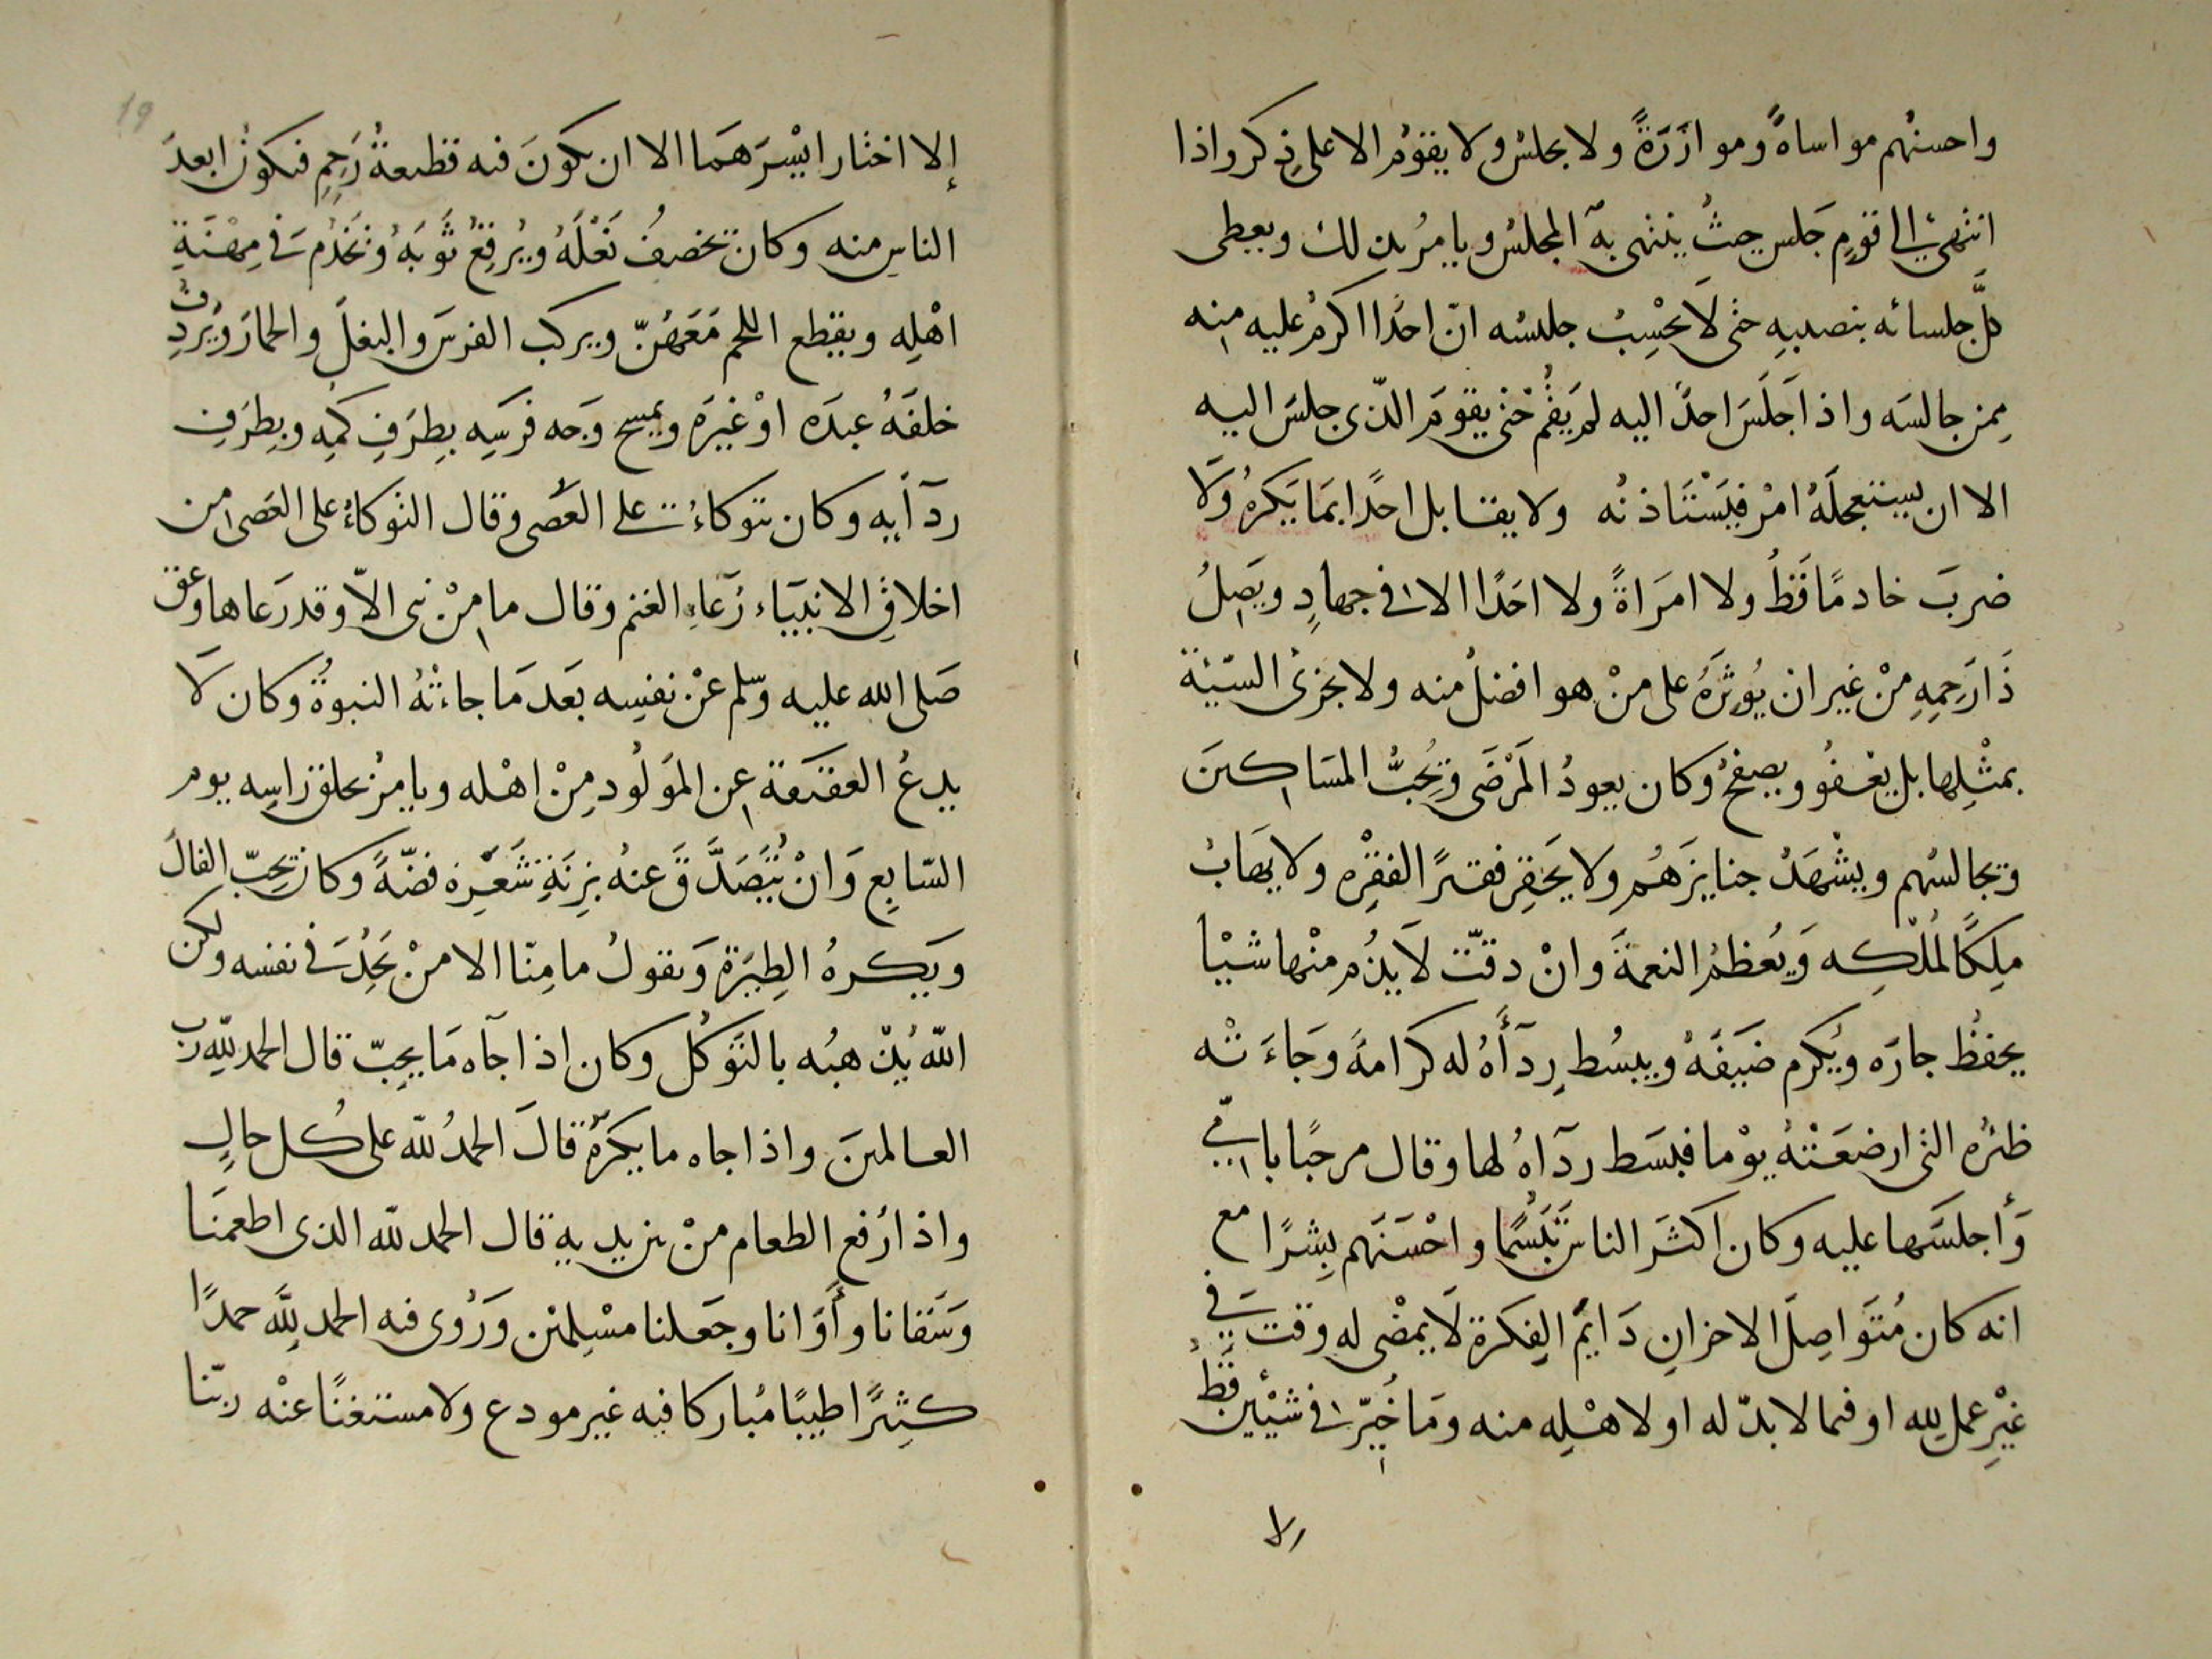 واحسنُهم مواساةً وموازَرَةً ولا يجلسُ ولا يقومُ الا على ذكر واذا
انتهى الى قومٍ جَلس حيثُ ينتهى به المجلسُ ويامرُ بذلك ويعطى
كلَّ جلسائه بنصيبهِ حتى لَا يحْسِبُ جليسُه انّ احدًا اكرمُ عليه منه
مِمن جالسَه واذا جَلَسَ احدٌ اليه لم يَقُمْ حتى يقومَ الذّى جلسَ اليه
الا ان يستعجلَهُ امْر فيَسْتَاذنُه ولا يقابل احدًا بمَا يَكرهُ ولَا
ضربَ خادمًا قَطُ ولا امرَاةً ولا احَدًا الا فى جهادٍ ويَصِلُ
ذَا رَحِمِهِ منْ غير ان يُوثرَهُ على منْ هو افضلُ منه ولا يجزىُ السّيّئة
بمثْلِها بل يعْفوُ ويصفحُ وكان يعودُ المَرْضَى ويُحِبُّ المسَاكينَ
ويجالسُهم ويشْهَدُ جنايزَهُم ولا يَحَقِر فقيرًا لفقْرِه ولا يهَابُ
مِلكًا لمُلْكِه وَيُعظمُ النعمةَ وانْ دقّت لَا يذُم منْها شيْا
يحفظُ جارَه ويُكرم ضَيفَهُ ويبسُط رِدآَهُ له كرامةً وجَاءَتْه
ظئرُه التى ارضعَتْهُ يوْما فبسَط ردآهُ لها وقال مرحبًا بامّى
وَأجلسَها عليه وكان اكثَر الناس تَبَسُّمًا واحْسَنَهم بِشرًا مع
انه كان مُتَواصِلَ الاحزانِ دَايمَ الفِكرة لَا يمْضى له وقت فى
غيْرِ عمل لله او فيما لا بدّ له او لاهْلِه منه ومَا خُيّر فى شيْئين قَطُ
الا
19
إلا اختار ايْسَرَهمَا الا ان يكونَ فيه قطيعةُ رَحِمٍ فيكونُ ابعدَ
الناس منه وكان يخصفُ نَعْلَهُ ويُرقِعُ ثَوبَهُ ويَخدُم فى مِهْنَةِ
اهْلِه ويقطع اللحم مَعَهُنّ ويركب الفرسَ والبغلَ والحمارَ ويُردِف
خلفَهُ عبدَه اوْ غيرَه ويمسح وَجه فرَسِه بِطرَفِ كمِهِ وبِطرَفِ
ردآَيهِ وكان يتوكاءُ على العَصى وقال التوكاءُ على العَصى من
اخلاقِ الانبيَاء رَعَاءِ الغنم وقال ما منْ نبى الاّ وقد رَعاها وعق
صَلى الله عليه وسّلم عنْ نفسِه بعَد مَا جاءتهُ النبوةُ وكان لَا
يدعُ العقيَقة عن المَولُود مِنْ اهْله ويامِرُ بحلق راسِه يوم
السّابع وَانْ يُتَصَدَّقَ عنهُ بزِنَةِ شَعْرِه فضّةً وكان يحبّ الفالَ
ويَكرهُ الطِيَرَة وَيقولُ ما مِنّا الا منْ يَجِدُ فى نفسه ولكن
اللّه يُذْهبُه بالتَوكل وكان اذا جآه مَا يحِبّ قال الحمد للّهِ رب
العالمينَ واذا جاه ما يكرَهُ قالَ الحمدُ للّه على كُل حالٍ
واذا رُفع الطعام منْ بين يديهِ قال الحمد للّه الذى اطعمنَا
وَسَقانا وأَوَانا وجعَلنا مسْلِمين وَرُوى فيه الحمد للَّه حمدًا
كثيرًا طيبًا مُباركا فيه غير مودع ولا مستغنًا عنْه ربّنا